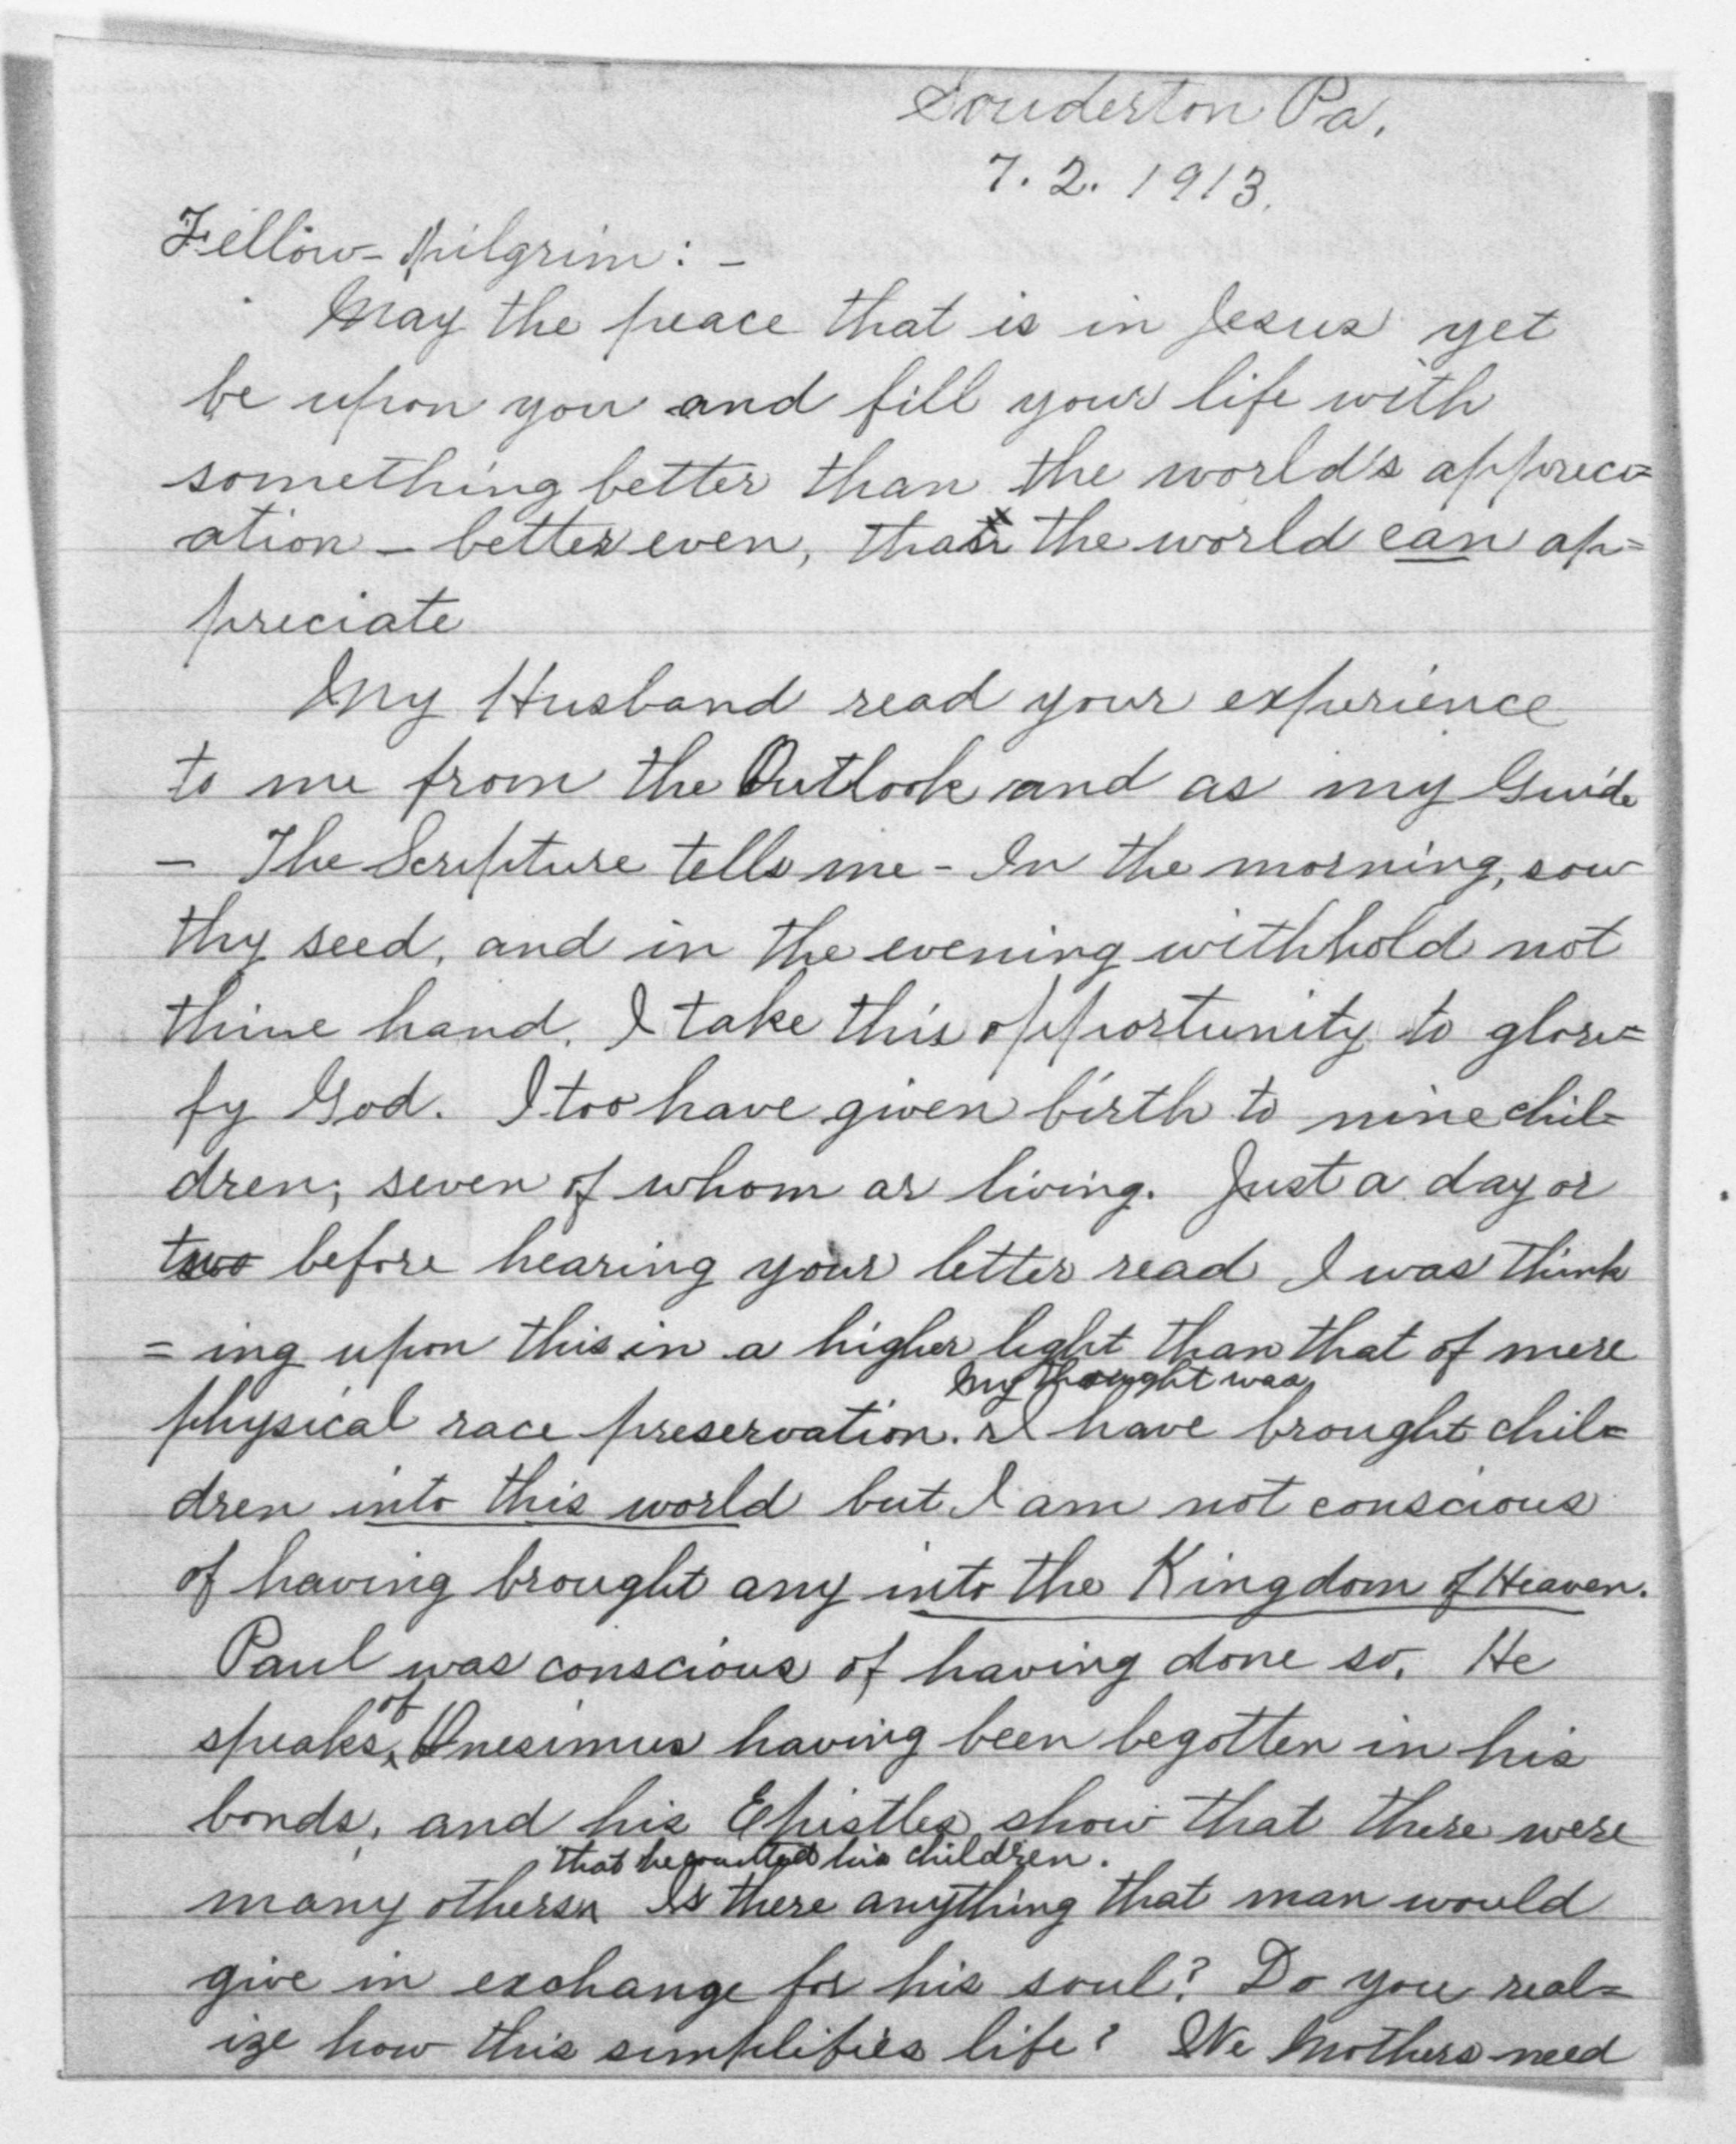 Souderton Pa.
7. 2. 1913.
Fellow-pilgrim: -
May the peace that is in Jesus yet
be upon you and fill your life with
something better than the world's appreci=
ation - better even, than the world can ap=
preciate
My Husband read your experience
to me from the Outlook and as my Guide
- The Scripture tells me - In the morning, sow
thy seed, and in the evening withhold not
thine hand. I take this opportunity to glori=
fy God. I too have given birth to nine chil=
dren; seven of whom ar living. Just a day or
two before hearing your letter read I was think
= ing upon this in a higher light than that of mere
My thought was,
physical race preservation. I have brought chil=
dren into this world but I am not conscious
of having brought any into the Kingdom of Heaven.
Paul was conscious of having done so. He
of
speaks Onesimus having been begotten in his
bonds, and his Epistles show that there were
that he counted his children.
many others Is there anything that man would
give in exchange for his soul? Do you real=
ize how this simplifies life? We Mothers need